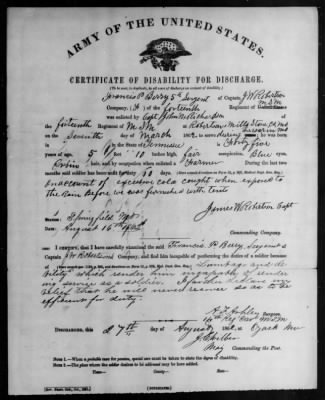 ARMY OF THE UNITED STATES.
CERTIFICATE OF DISABILITY FOR DISCHARGE.
(To be used, in duplicate, in all cases of discharge on account of disability.)
Francis P. Berry 5th Sergent of Captain J W Robertson
Company, ( ) of the forteenth M S M Regiment of
was enlisted by Capt John M Richardson of
the forteenth Regiment of M S M at Robertsons Mills Stone Co Mo
on the Seventh day of March 1862 to serve during the war in Mo he was born
in in the State of Tennessee is thirty five
years of age, 5 feet 10 inches high, fair complexion, Blue eyes,
hair, and by occupation when enlisted a Farmer During the last two
months said soldier has been unfit for duty 30 days
on account of excessive cold caught when exposed to
the rain before we was furnished with tents
James W Robertson Capt
Commanding Company.
STATION: Springfield Mo
DATE: August 16th 1862
I CERTIFY, that I have carefully examined the said Francis P. Berry, Sergent of
Captain J W Robertsons Company, and find him incapable of performing the duties of a soldier because
of
Lumbago and de
bility which render him incapable of rendering
service as a soldier. I further declare my
belief that he will never recover so as to be
efficient for duty.
Surgeon.
14th Reg Cav M S M
DISCHARGED, this 27th day of August 1862 at Ozark Mo
Maj Commanding the Post.
NOTE 1.—When a probable case for pension, special care must be taken to state the degree of disability.
NOTE 2.—The place where the soldier desires to be addressed may be here added.
Town— County— State—
[DUPLICATES.]